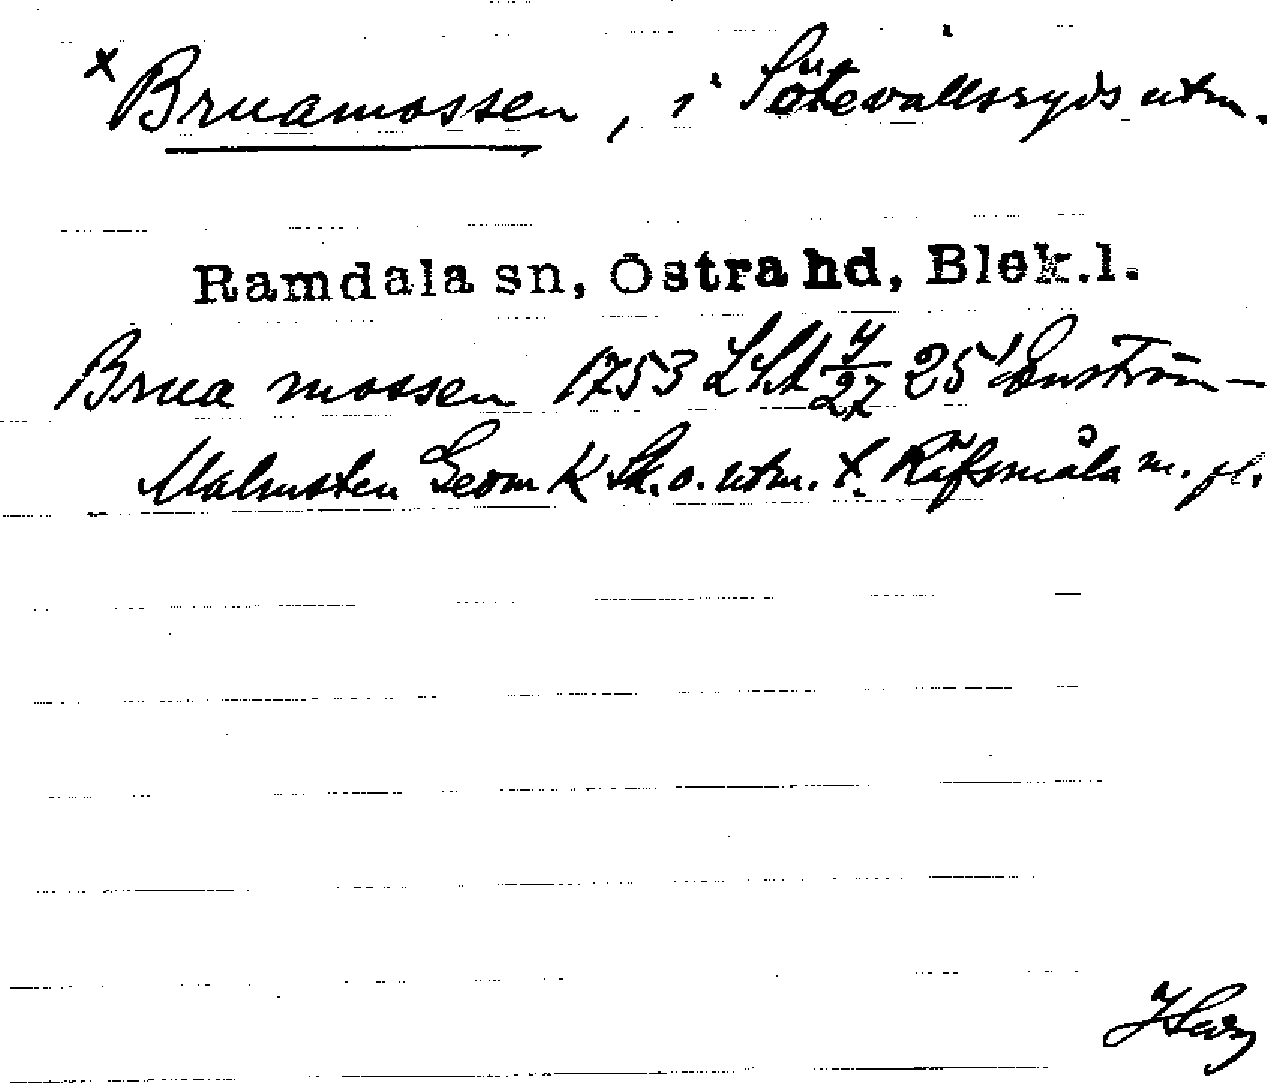 x Bruamossen, i Sötevallsryds utm.
Ramdala sn, Östra hd, Blek.l.
Brua mossen 1753 LSA y/27 25' Enström-
Malmsten Geom K Sk. o. utm. t. Räfsmåla m. fl.